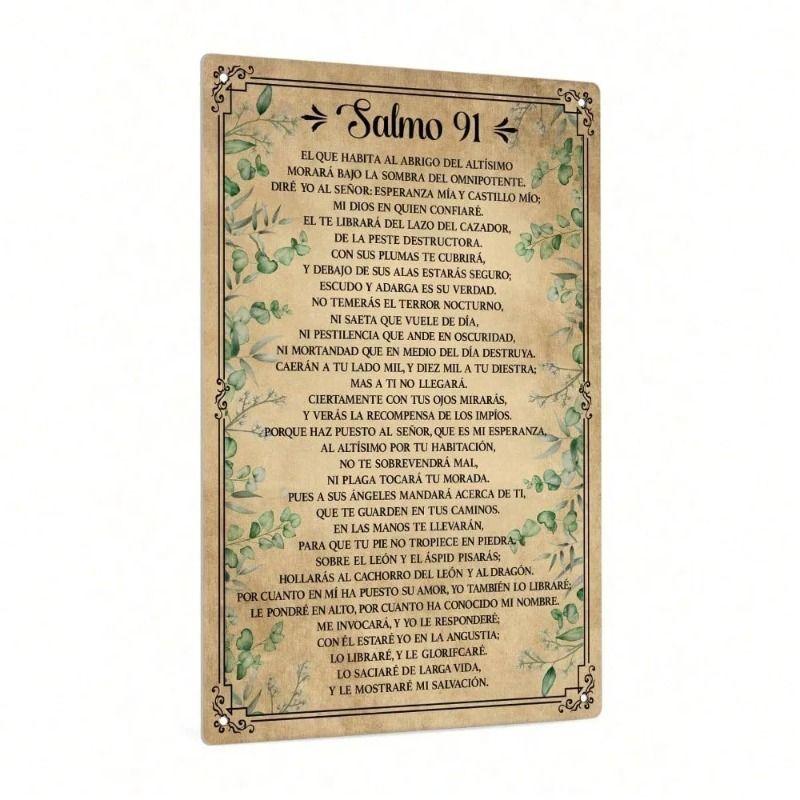 Salmo 91
EL QUE HABITA AL ABRIGO DEL ALTÍSIMO
MORARÁ BAJO LA SOMBRA DEL OMNIPOTENTE.
DIRÉ YO AL SEÑOR: ESPERANZA MÍA Y CASTILLO MÍO;
MI DIOS EN QUIEN CONFIARÉ.
EL TE LIBRARÁ DEL LAZO DEL CAZADOR,
DE LA PESTE DESTRUCTORA.
CON SUS PLUMAS TE CUBRIRÁ,
Y DEBAJO DE SUS ALAS ESTARÁS SEGURO;
ESCUDO Y ADARGA ES SU VERDAD.
NO TEMERÁS EL TERROR NOCTURNO,
NI SAETA QUE VUELE DE DÍA,
NI PESTILENCIA QUE ANDE EN OSCURIDAD,
NI MORTANDAD QUE EN MEDIO DEL DÍA DESTRUYA.
CAERÁN A TU LADO MIL, Y DIEZ MIL A TU DIESTRA;
MAS A TI NO LLEGARÁ.
CIERTAMENTE CON TUS OJOS MIRARÁS,
Y VERÁS LA RECOMPENSA DE LOS IMPÍOS.
PORQUE HAZ PUESTO AL SEÑOR, QUE ES MI ESPERANZA,
AL ALTÍSIMO POR TU HABITACIÓN,
NO TE SOBREVENDRÁ MAL,
NI PLAGA TOCARÁ TU MORADA.
PUES A SUS ÁNGELES MANDARÁ ACERCA DE TI,
QUE TE GUARDEN EN TUS CAMINOS.
EN LAS MANOS TE LLEVARÁN,
PARA QUE TU PIE NO TROPIECE EN PIEDRA.
SOBRE EL LEÓN Y EL ÁSPID PISARÁS;
HOLLARÁS AL CACHORRO DEL LEÓN Y AL DRAGÓN.
POR CUANTO EN MÍ HA PUESTO SU AMOR, YO TAMBIÉN LO LIBRARÉ;
LE PONDRÉ EN ALTO, POR CUANTO HA CONOCIDO MI NOMBRE.
ME INVOCARÁ, Y YO LE RESPONDERÉ;
CON ÉL ESTARÉ YO EN LA ANGUSTIA;
LO LIBRARÉ, Y LE GLORIFCARÉ.
LO SACIARÉ DE LARGA VIDA,
Y LE MOSTRARÉ MI SALVACIÓN.